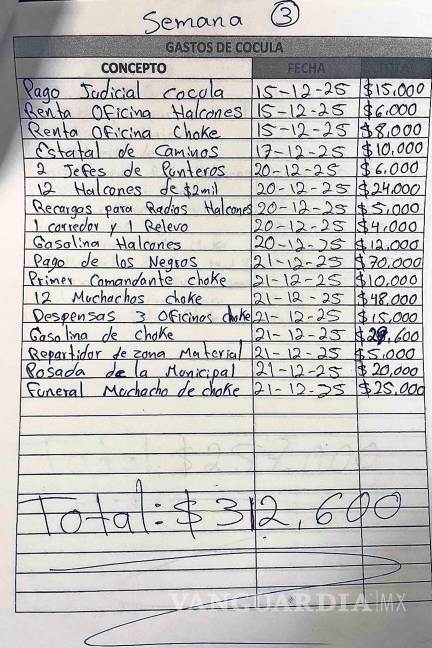 Semana ③
GASTOS DE COCULA
CONCEPTO FECHA TOTAL
Pago Judicial cocula 15-12-25 $15,000
Renta Oficina Halcones 15-12-25 $6,000
Renta Oficina Choke 15-12-25 $8,000
Estatal de Caminos 17-12-25 $10,000
2 Jefes de Punteros 20-12-25 $6,000
12 Halcones de $2mil 20-12-25 $24,000
Recargas para Radios Halcones 20-12-25 $5,000
1 corredor y 1 Relevo 20-12-25 $4,000
Gasolina Halcones 20-12-25 $12,000
Pago de los Negros 21-12-25 $70,000
Primer Comandante choke 21-12-25 $10,000
12 Muchachos choke 21-12-25 $48,000
Despensas 3 Oficinas choke 21-12-25 $15,000
Gasolina de choke 21-12-25 $29,600
Repartidor de zona Material 21-12-25 $5,000
Posada de la Municipal 21-12-25 $20,000
Funeral Muchacho de choke 21-12-25 $25,000
Total: $312,600
VANGUARDIA|MX